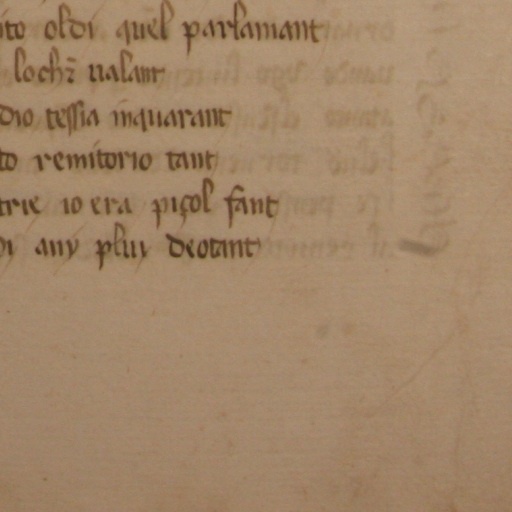 ito oldi quel parlamant
loch͛ ualant
dio tessia inquarant
to remitorio tant
trie io era piçol fant
di any plui deotant